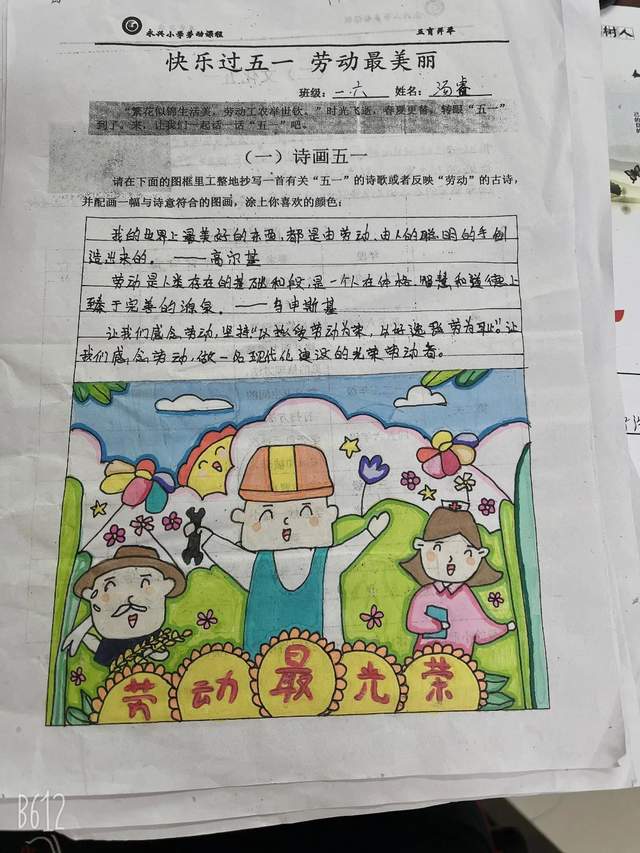 永兴小学劳动课程 五育并举
快乐过五一 劳动最美丽
班级：一六 姓名：冯睿
“繁花似锦生活美，劳动工农举世钦。”时光飞逝，春夏更替，转眼“五一”
到了。来，让我们一起话一话“五一”吧。
（一）诗画五一
请在下面的图框里工整地抄写一首有关“五一”的诗歌或者反映“劳动”的古诗，
并配画一幅与诗意符合的图画，涂上你喜欢的颜色：
我的世界上最美好的东西，都是由劳动、由人的聪明的手创
造出来的。——高尔基
劳动是人类存在的基础和手段，是一个人在体格、智慧和道德上
臻于完善的源泉。——乌申斯基
让我们感念劳动，坚持“以热爱劳动为荣，以好逸恶劳为耻”。让
我们感念劳动，做一名现代化建设的光荣劳动者。
劳动最光荣
树人
B612